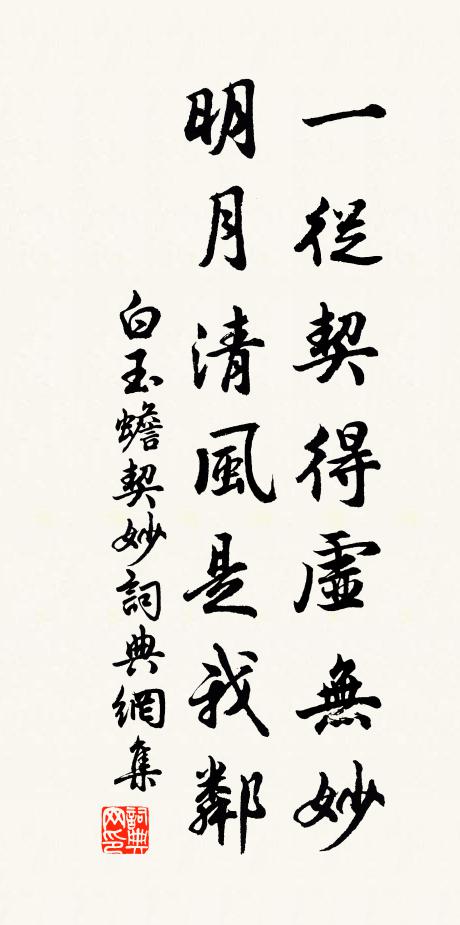 一從契得虛無妙
明月清風是我鄰
白玉蟾契妙詞典網集
詞典網印